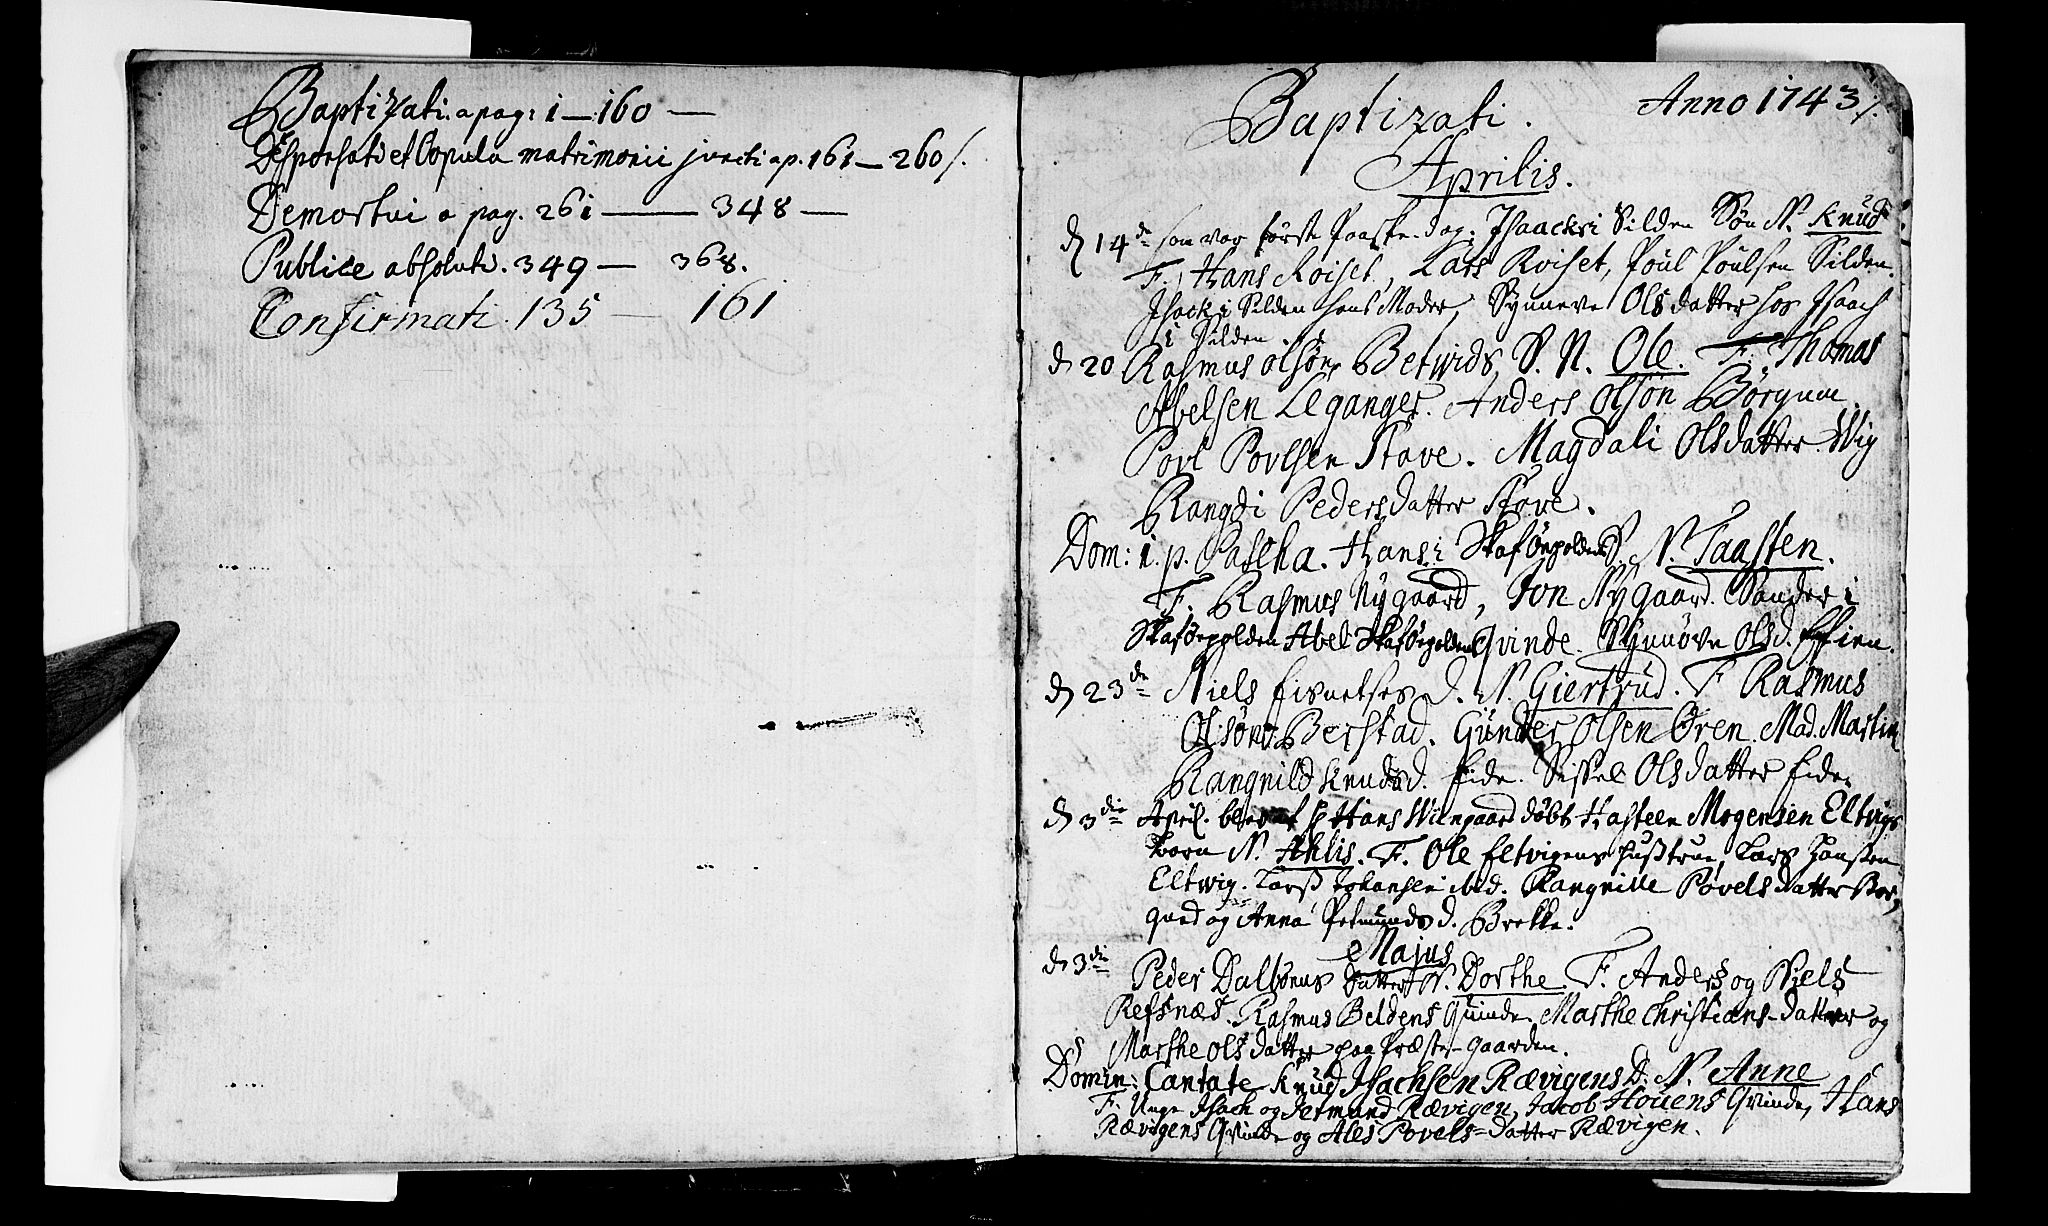 Baptizati. a pag: 1 — 160 —
Desponsati et Copula matrimonii juncti a p. 161 — 260 /.
Demortui a pag. 261 — 348 —
Publice absoluti. 349 — 368.
Confirmati. 135 — 161
Baptizati. Anno 1743 /.
Aprilis.
d 14de som var første Paaske-dag. Isaacks i Silden Søn N. Knud
F. Hans Roiset, Lars Roiset, Poul Poulsen Silden.
Isacks i Silden hans Moder, Synneve Olsdatter hos Isaach
i Silden.
d 20 Rasmus Olsøns Betwids S. N. Ole. F. Thomas
Abelsen Leganger. Anders Olsøn Børgum
Povl Povlsen Stave. Magdali Olsdatter Wig
Rangdi Pedersdatter Stave.
Dom: 1. p. Pascha. Hans i S. N. Taasten.
F. Rasmus Nygaard, Jon Nygaard. Sander i
Abel Qvinde. Synnøve Olsd.
d 23de Niels D. N. Giertrud. F. Rasmus
Olsøn Berstad. Gunder Olsen Øren. Mad. Martin
Rangnild Knudsd. Eide. Sissel Olsdatter Eide.
d 3die April. blev af Hr Hans Wiingaard døbt Hasteen Mogensen Eltvigs
barn N. Ahlis. F. Ole Eltvigens Hustrue, Lars Hansen
Eltwig. Lars Johansen ibid. Rangnille Povelsdatter
og Anna d. Brekke.
Majus
d 3die Peder Datter N. Dorthe. F. Anders og Niels
Refsnæs. Rasmus Beldens Quinde. Marthe Christians-datter og
Marthe Olsdatter paa Præste-gaarden.
Domin: Cantate Knud Isachsen Rævigens D. N. Anne
F. Unge Isach og Rævigen, Jacob Houens Qvinde, Hans
Rævigens Qvinde og Ales Povels-datter Rævigen.